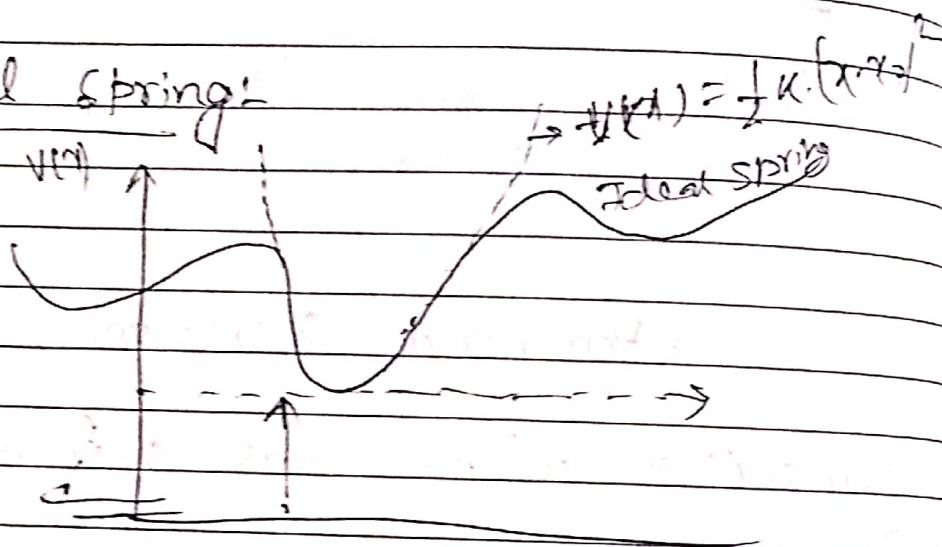 l Spring:-
→ V(x) = 1/2 K.(x-x0)²
V(x)
Ideal spring